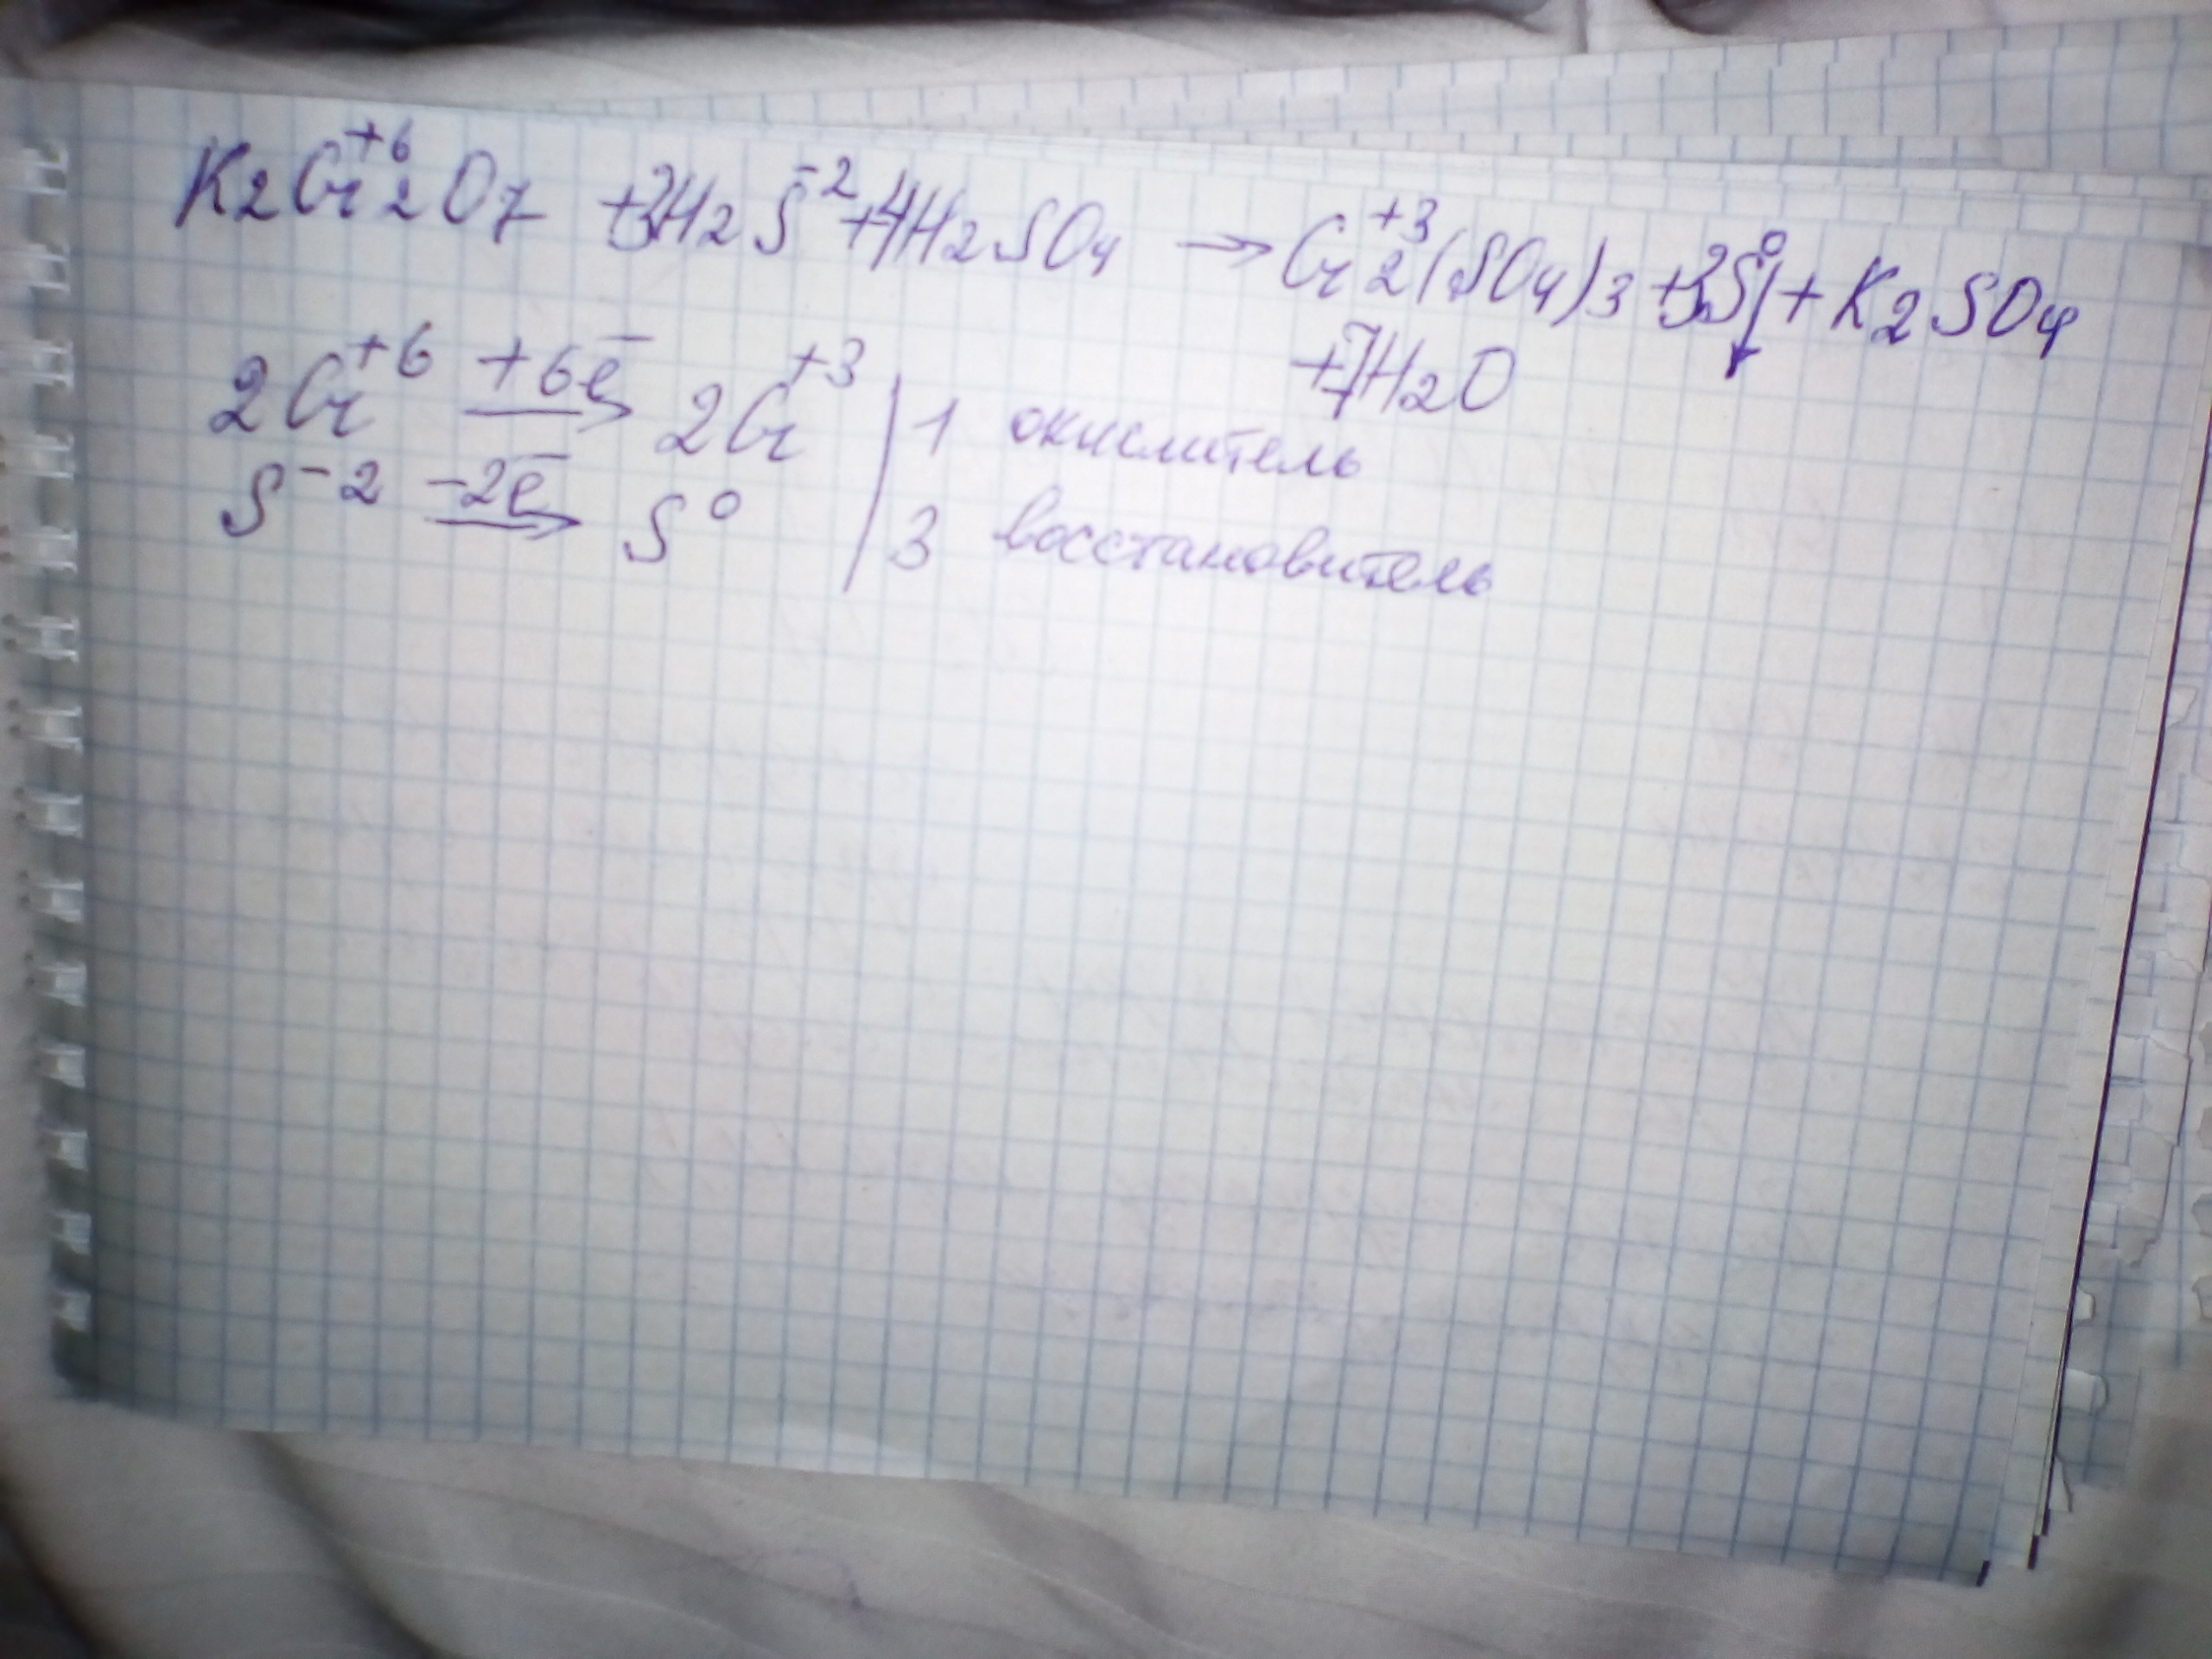 K2Cr2^+6O7 + 3H2S^-2 + 4H2SO4 → Cr2^+3(SO4)3 + 3S^0↓ + K2SO4
+ 7H2O
2Cr^+6 +6ē → 2Cr^+3 | 1 окислитель
S^-2 -2ē → S^0 | 3 восстановитель